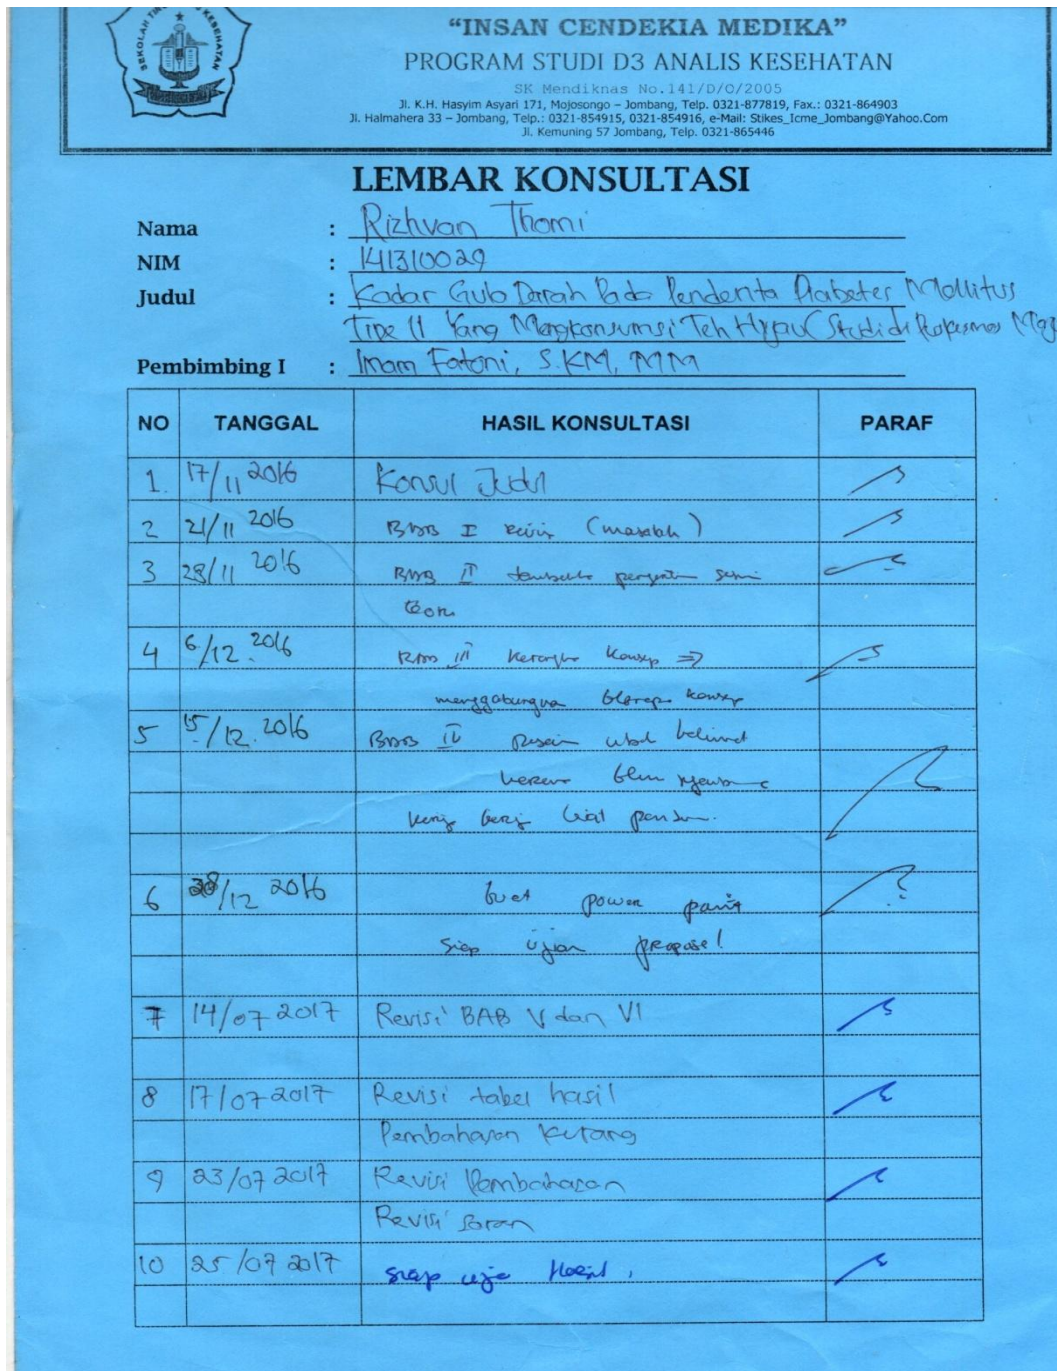 SEKOLAH TINGGI KESEHATAN
“INSAN CENDEKIA MEDIKA”
PROGRAM STUDI D3 ANALIS KESEHATAN
SK Mendiknas No.141/D/O/2005
Jl. K.H. Hasyim Asyari 171, Mojosongo – Jombang, Telp. 0321-877819, Fax.: 0321-864903
Jl. Halmahera 33 – Jombang, Telp.: 0321-854915, 0321-854916, e-Mail: Stikes_Icme_Jombang@Yahoo.Com
Jl. Kemuning 57 Jombang, Telp. 0321-865446
LEMBAR KONSULTASI
Nama : Rizhvan Thomi
NIM : 141310029
Judul : Kadar Gula Darah Pada Penderita Diabetes Mellitus
Tipe II Yang Mengkonsumsi Teh Hijau (Studi di Puskesmas
Pembimbing I : Imam Fatoni, S.KM, MM
NO TANGGAL HASIL KONSULTASI PARAF
1. 17/11 2016 Konsul Judul
2 21/11 2016 BAB I revisi (masalah)
3 28/11 2016 BAB II
teori
4 6/12. 2016 BAB III kerangka konsep =>
konsep
5 15/12. 2016 BAB IV
6 28/12 2016 buat power point
siap ujian proposal
7 14/07 2017 Revisi BAB V dan VI
8 17/07 2017 Revisi tabel hasil
Pembahasan kurang
9 23/07 2017 Revisi Pembahasan
Revisi saran
10 25/07 2017 siap uji Hasil.